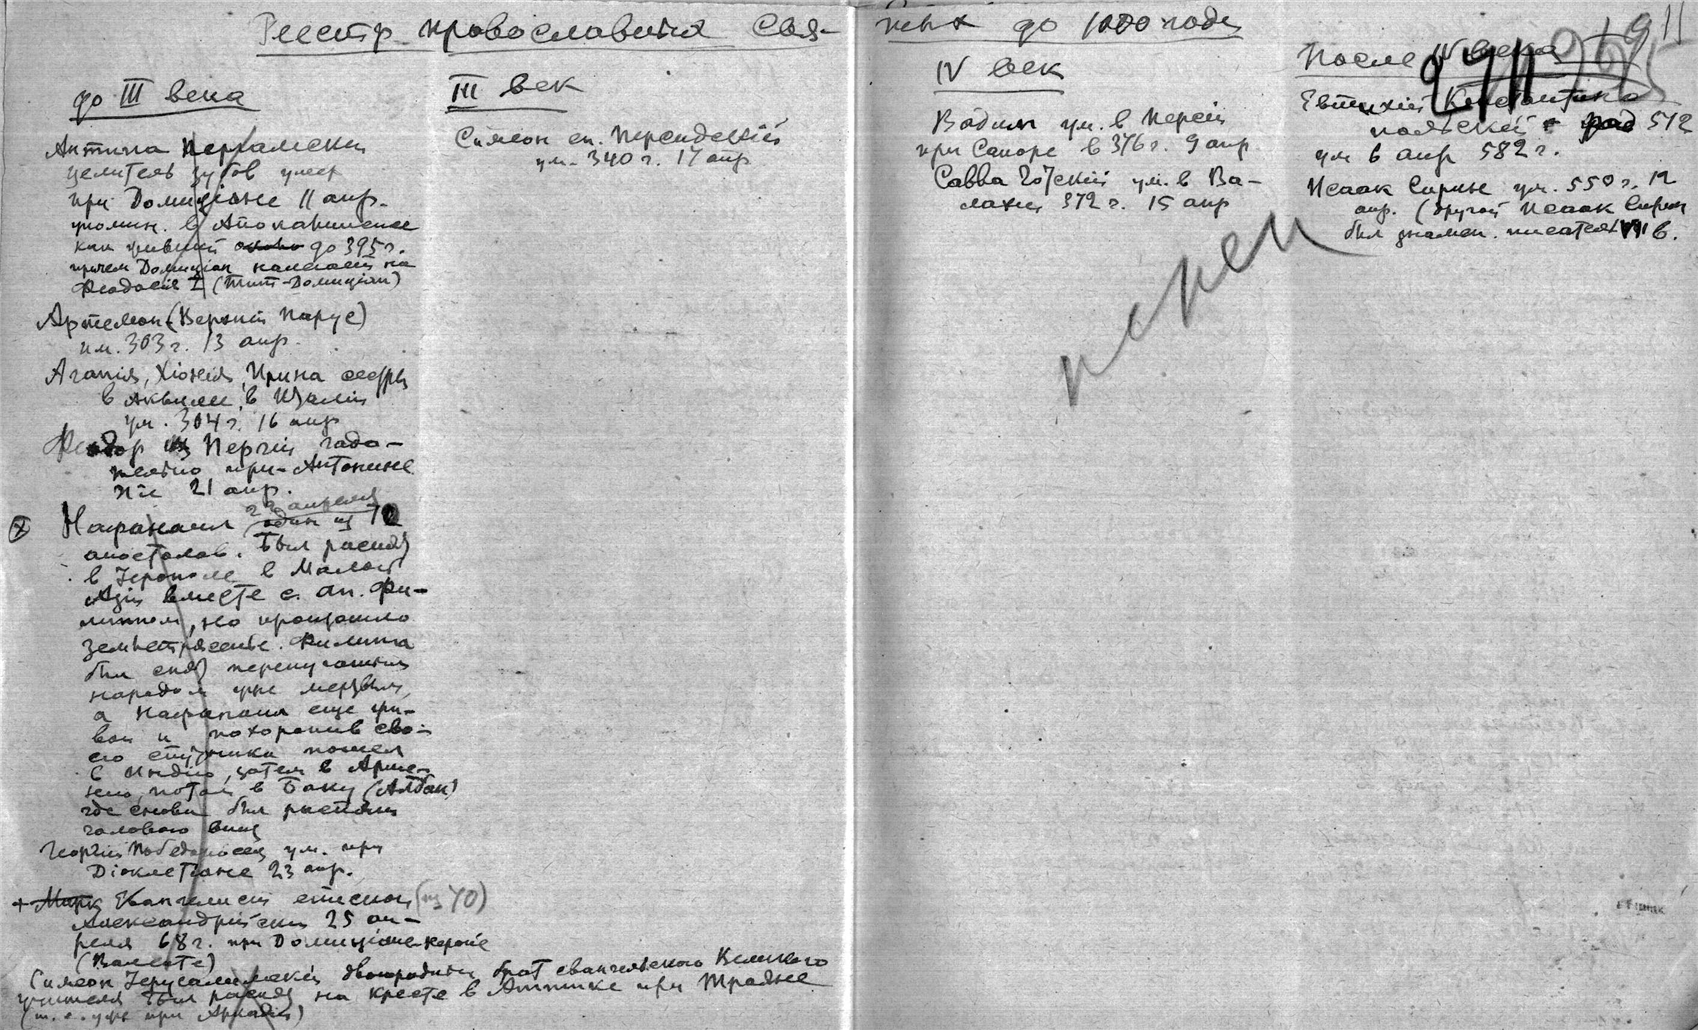 Реестр православных Свя-
тых до 1000 года
до III века
Антипа Пергамский
целитель зубов умер
при Домиціане 11 апр.
упомин. в Апокалипсисе
как живший до 395 г.
причем Домициан
Феодосія I (Тит-Домициан)
Артемон (Верхній Парус)
ум. 303 г. 13 апр.
Агапія, Хіонія, Ирина сестры
в Аквилее в Италіи
ум. 304 г. 16 апр
Феодор из Пергіи гада-
тельно при Антонине
Піе 21 апр.
22 апреля
Нафанаил один из 70
апостолов. Был распят
в Іерополе в Малой
Азіи вместе с ап. Фи-
липпом, но произошло
землетрясенье. Филипп
был снят перепуганным
народом уже мертвым,
а Нафанаил еще жи-
вой и похоронив сво-
его спутника пошел
в Индію, затем в Арме-
нію, потом в Баку (Албан)
где снова был распят
головою вниз
Георгій Победоносец ум. при
Діоклетіане 23 апр.
+ Марк Евангелист епископ (из 70)
Александрійскій 25 ап-
реля 68 г. при Домиціане-Нероне
(Валенте)
Симеон Іерусалимскій двоюродный брат евангельского Великого
учителя был распят на кресте в Аттике при Траяне
(т. е. уже при Аркадіи)
III век
Симеон еп. Персидскій
ум. 340 г. 17 апр
IV век
Вадим ум. в Персіи
при Сапоре в 376 г. 9 апр.
Савва Готскій ум. в Ва-
лахіи 372 г. 15 апр
перен
После IV века
Евтихій Константино-
польскій 512
ум 6 апр 582 г.
Исаак Сирин ум. 550 г. 12
апр. (другой Исаак Сирин
был знамен. писатель VII в.